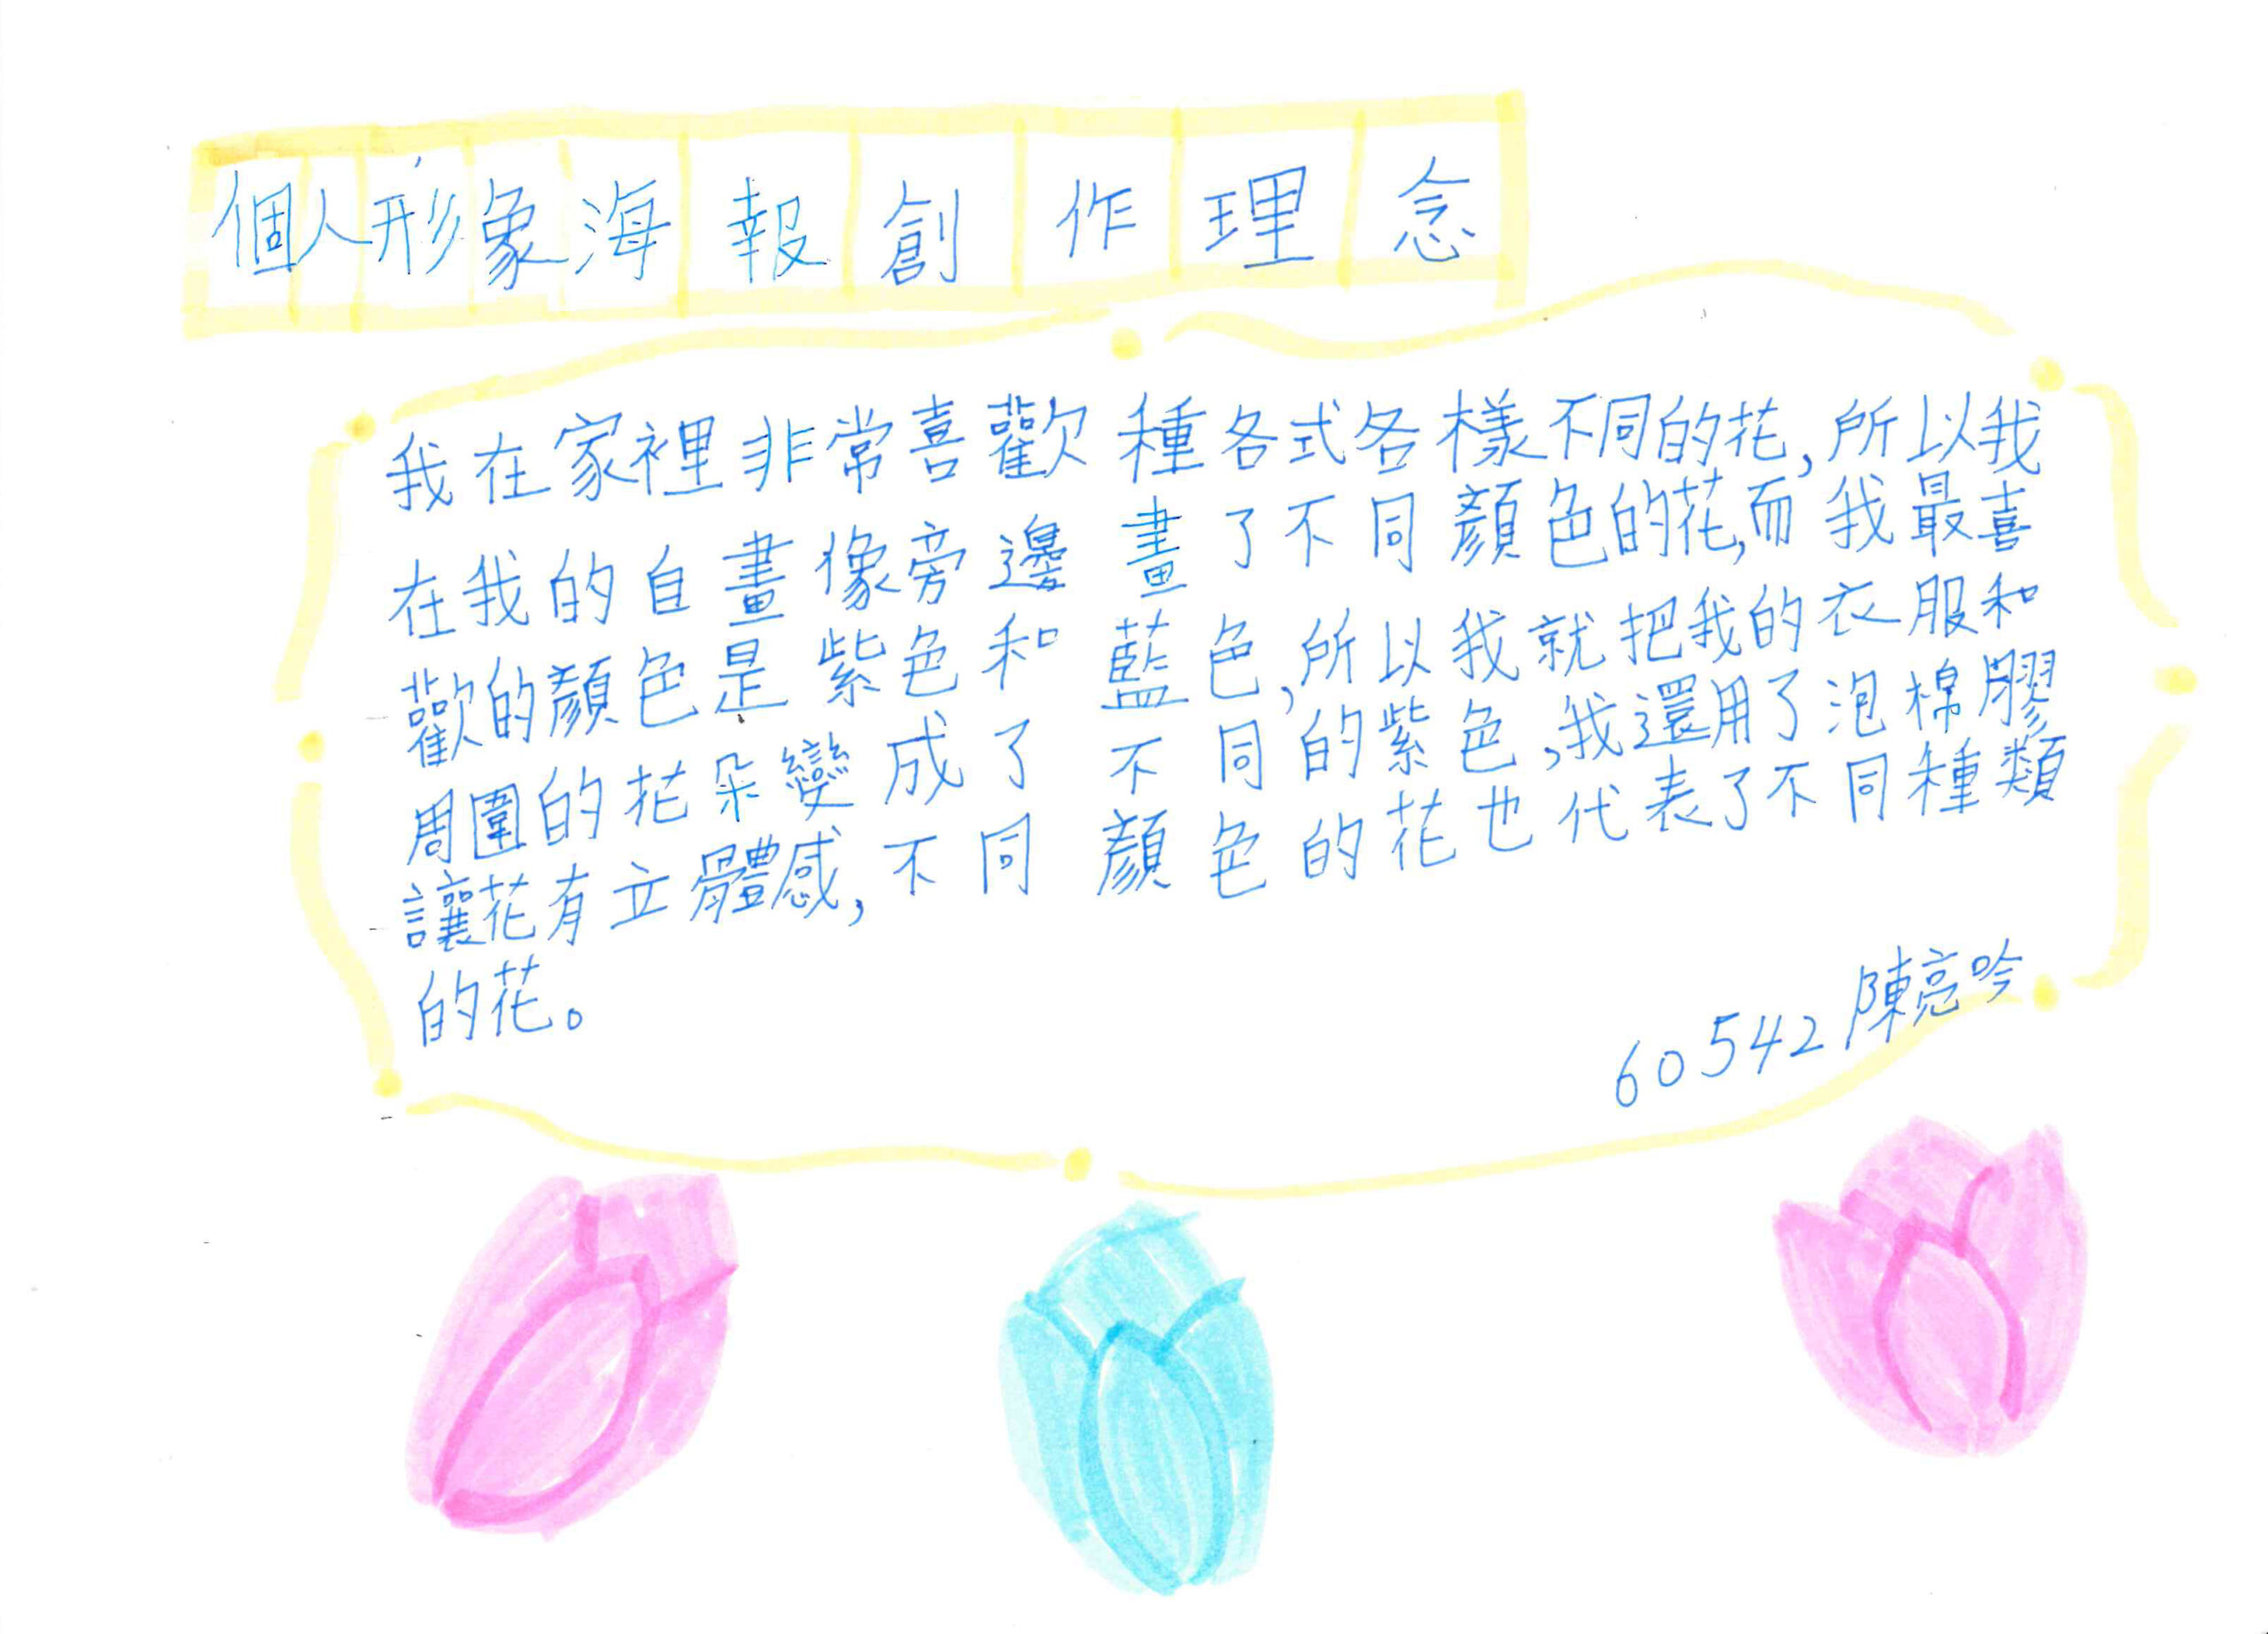 個人形象海報創作理念
我在家裡非常喜歡種各式各樣不同的花,所以我
在我的自畫像旁邊畫了不同顏色的花,而我最喜
歡的顏色是紫色和藍色,所以我就把我的衣服和
周圍的花朵變成了不同的紫色,我還用了泡棉膠
讓花有立體感,不同顏色的花也代表了不同種類
的花。
60542陳亮吟